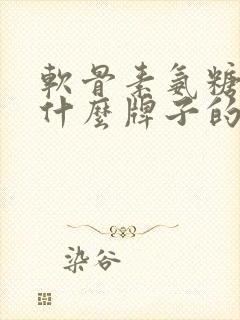 軟骨素氨糖
什麼牌子的
染谷